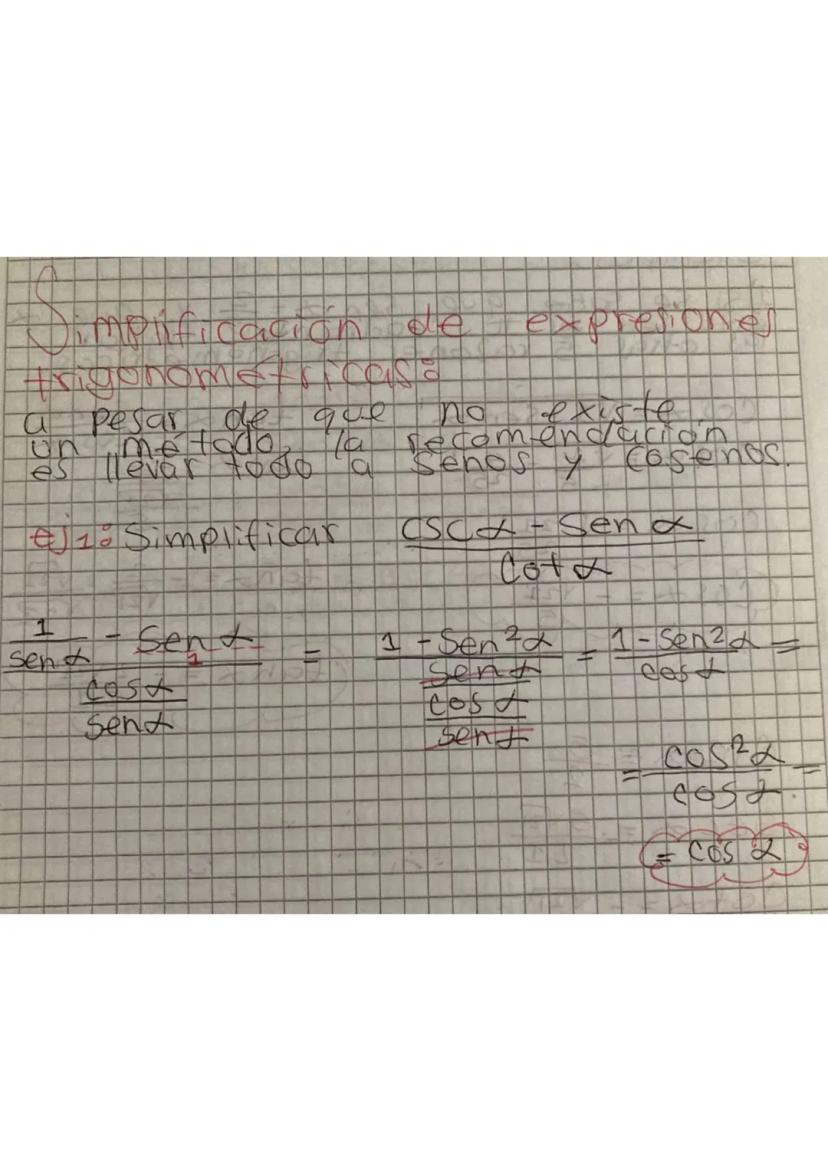 Simplificación de expresiones
trigonométricas:
a pesar de que no existe
un método, la recomendación
es llevar todo a senos y cosenos.
ej1: Simplificar (csc α - sen α) / (cot α)
((1 / sen α) - (sen α / 1)) / (cos α / sen α) = ((1 - sen² α) / sen α) / (cos α / sen α) = (1 - sen² α) / (cos α) =
= (cos² α) / (cos α) =
= cos α